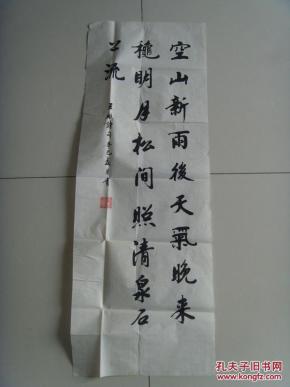 空山新雨後天氣晚来
穐明月松间照清泉石
上流
王維詩
孔夫子旧书网